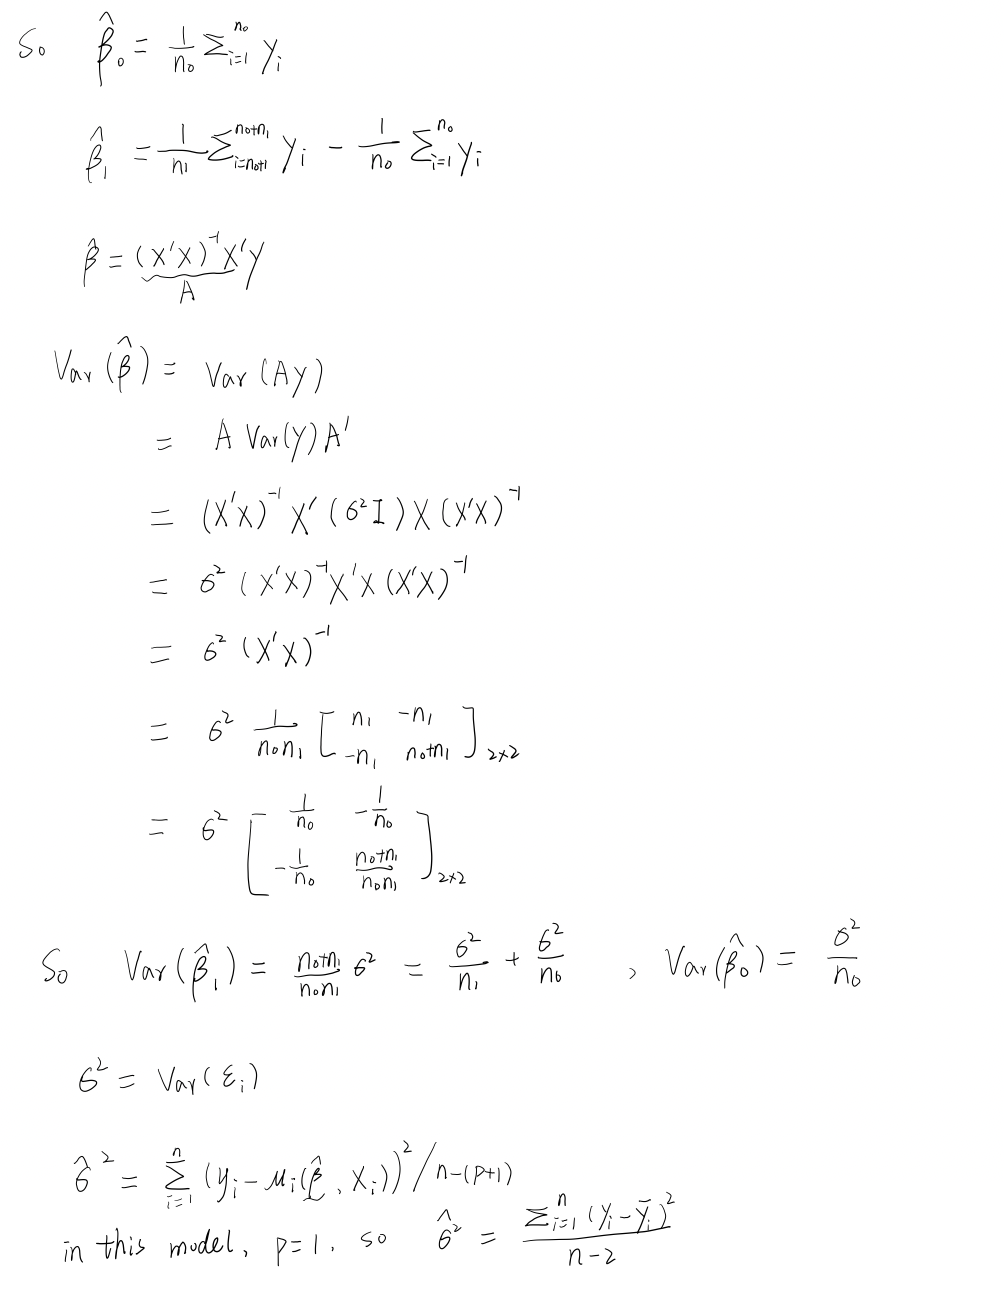 So β̂₀ = 1/n₀ Σᵢ₌₁^n₀ yᵢ
β̂₁ = 1/n₁ Σᵢ₌ₙ₀₊₁^(n₀+n₁) yᵢ - 1/n₀ Σᵢ₌₁^n₀ yᵢ
β̂ = (X'X)⁻¹X'Y
A
Var(β̂) = Var(AY)
= A Var(Y)A'
= (X'X)⁻¹X'(σ²I)X(X'X)⁻¹
= σ²(X'X)⁻¹X'X(X'X)⁻¹
= σ²(X'X)⁻¹
= σ² 1/(n₀n₁) [n₁ -n₁; -n₁ n₀+n₁]₂ₓ₂
= σ² [1/n₀ -1/n₀; -1/n₀ (n₀+n₁)/(n₀n₁)]₂ₓ₂
So Var(β̂₁) = (n₀+n₁)/(n₀n₁) σ² = σ²/n₁ + σ²/n₀ , Var(β̂₀) = σ²/n₀
σ² = Var(εᵢ)
σ̂² = Σᵢ₌₁ⁿ (yᵢ - μᵢ(β̂, Xᵢ))² / n-(p+1)
in this model, p=1. so σ̂² = Σᵢ₌₁ⁿ (yᵢ - ȳᵢ)² / n-2